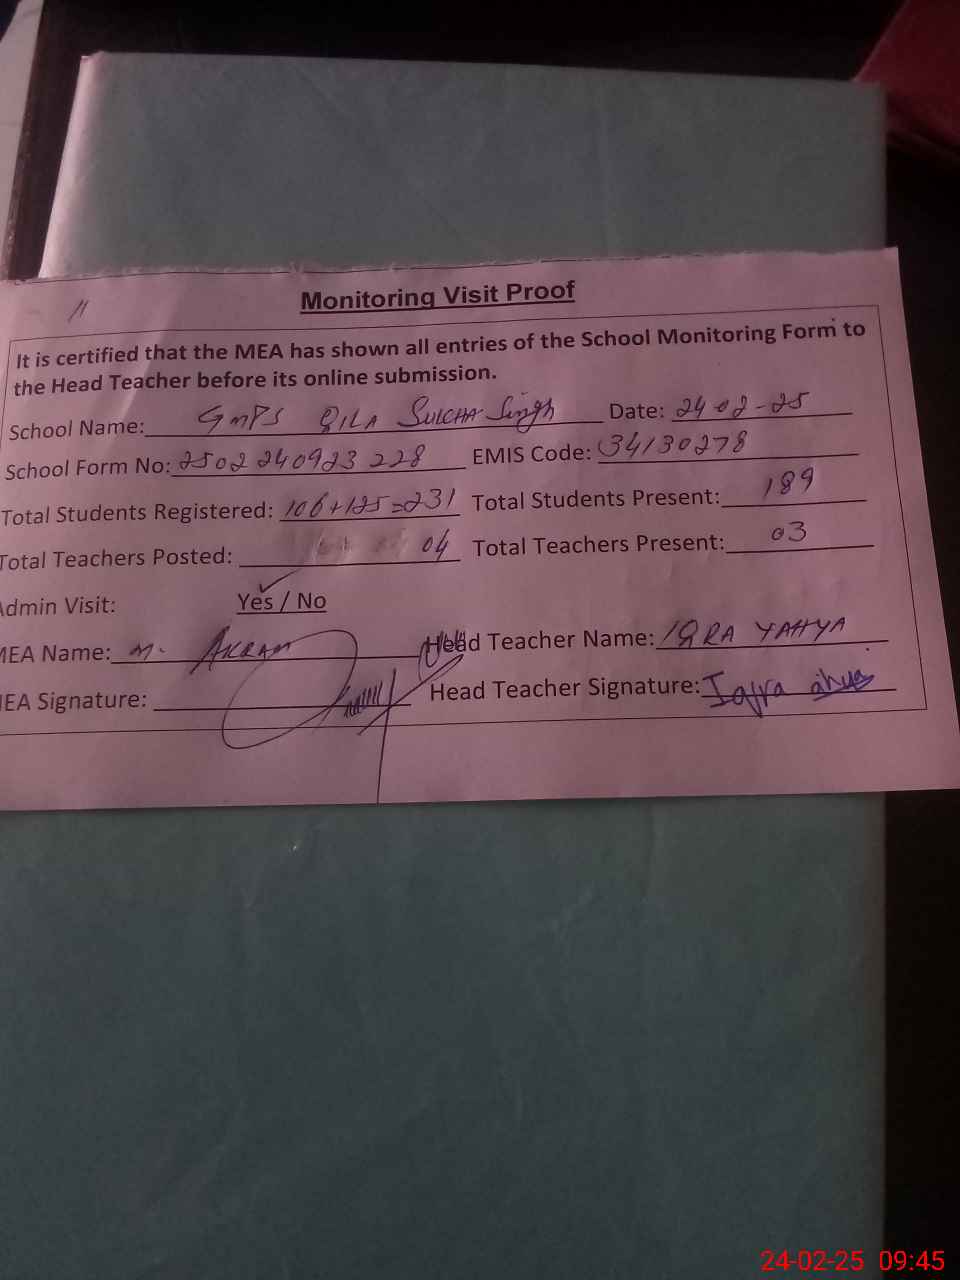 11
Monitoring Visit Proof
It is certified that the MEA has shown all entries of the School Monitoring Form to
the Head Teacher before its online submission.
School Name: GMPS QILA SUKHA Singh Date: 24-02-25
School Form No: 2502240923228 EMIS Code: 34130278
Total Students Registered: 106+125=231 Total Students Present: 189
Total Teachers Posted: 04 Total Teachers Present: 03
Admin Visit: Yes / No
MEA Name: M. AKRAM Head Teacher Name: IQRA YAHYA
MEA Signature: Head Teacher Signature: Iqra
24-02-25 09:45